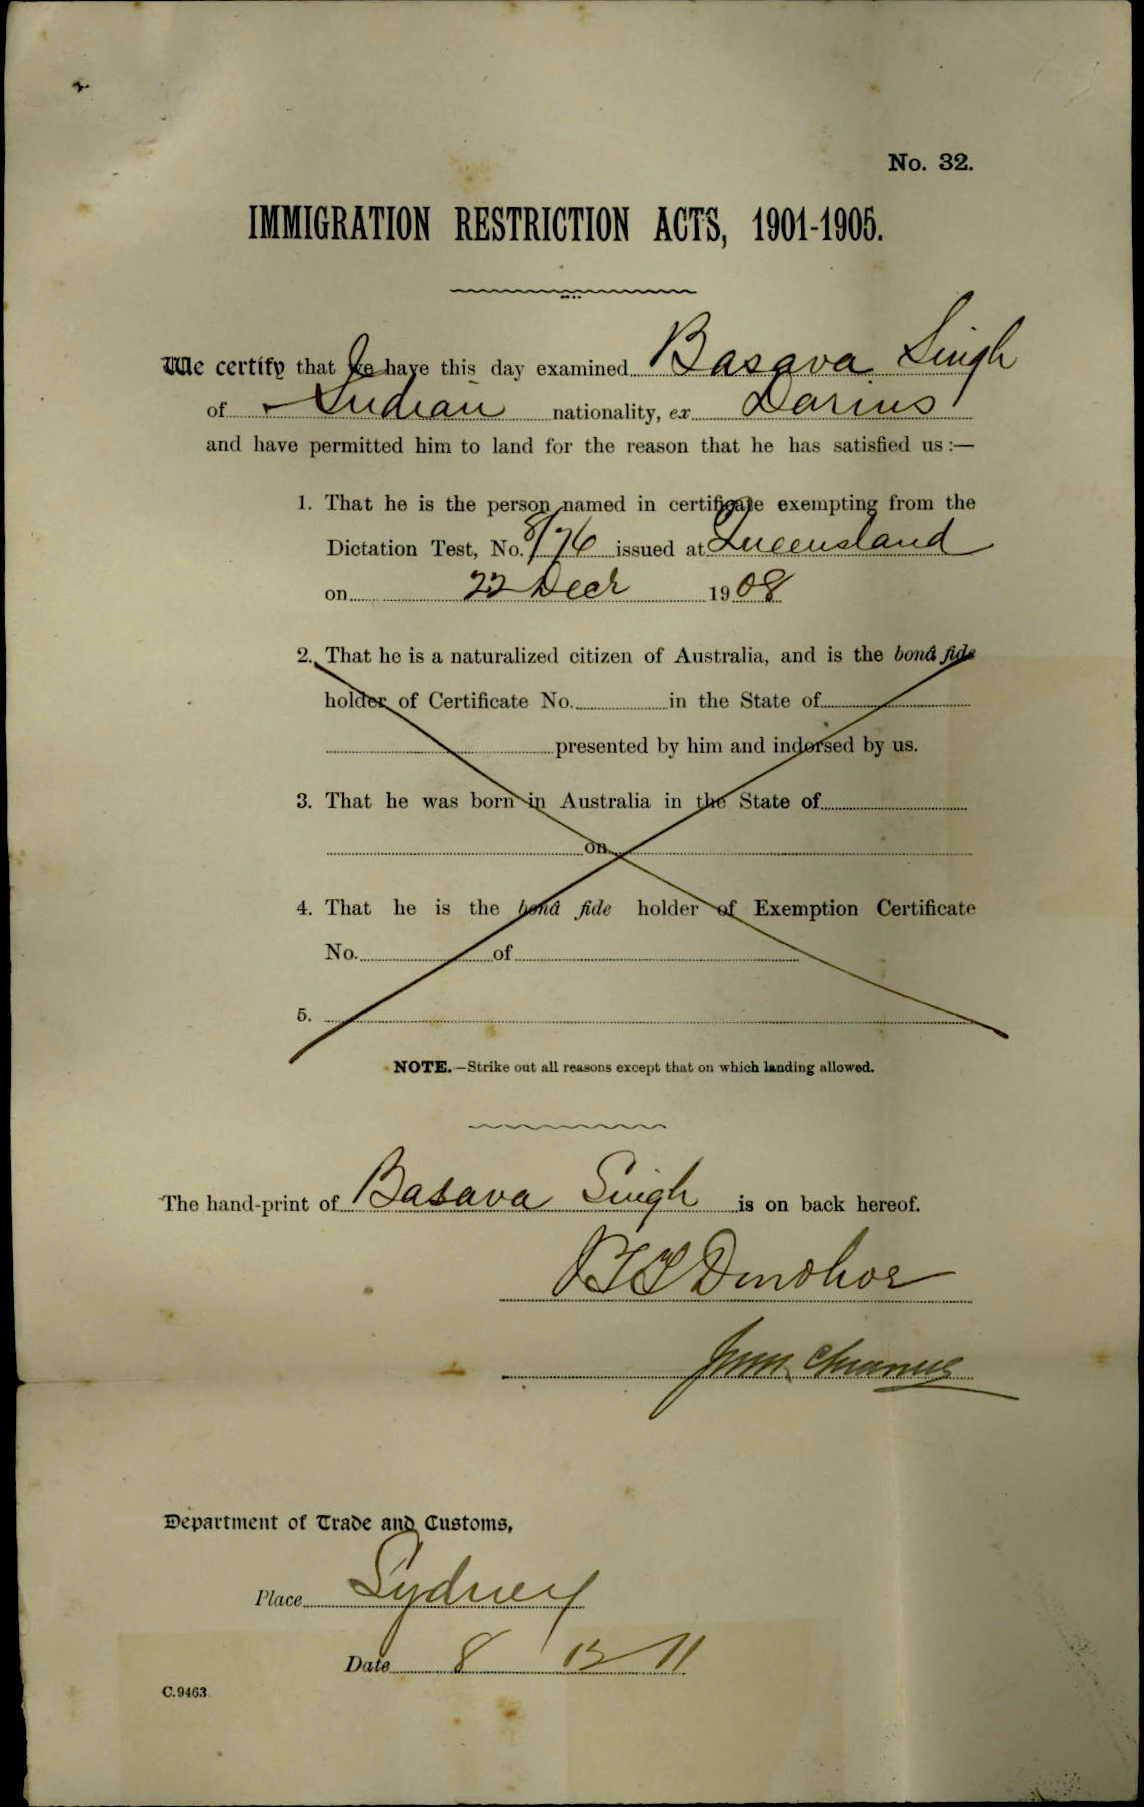 No. 32.
IMMIGRATION RESTRICTION ACTS, 1901-1905.
We certify that we have this day examined Basava Singh
of Indian nationality, ex Darius
and have permitted him to land for the reason that he has satisfied us :—
1. That he is the person named in certificate exempting from the
Dictation Test, No. 8/76 issued at Queensland
on 22 Decr 1908
2. That he is a naturalized citizen of Australia, and is the bonâ fide
holder of Certificate No. in the State of
presented by him and indorsed by us.
3. That he was born in Australia in the State of
on
4. That he is the bonâ fide holder of Exemption Certificate
No. of
5.
NOTE.—Strike out all reasons except that on which landing allowed.
The hand-print of Basava Singh is on back hereof.
Donohoe
Department of Trade and Customs,
Place Sydney
Date 8 12 11
C.9463.